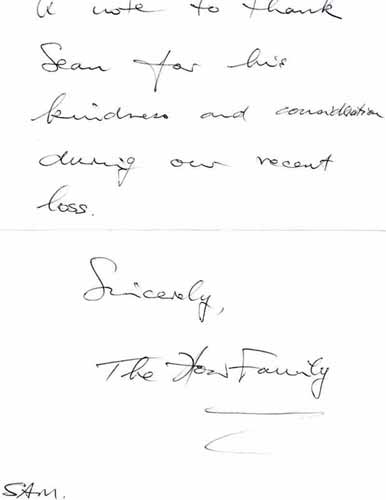 a note to thank
Sean for his
kindness and consideration
during our recent
loss.
Sincerely,
The Family
SAM.